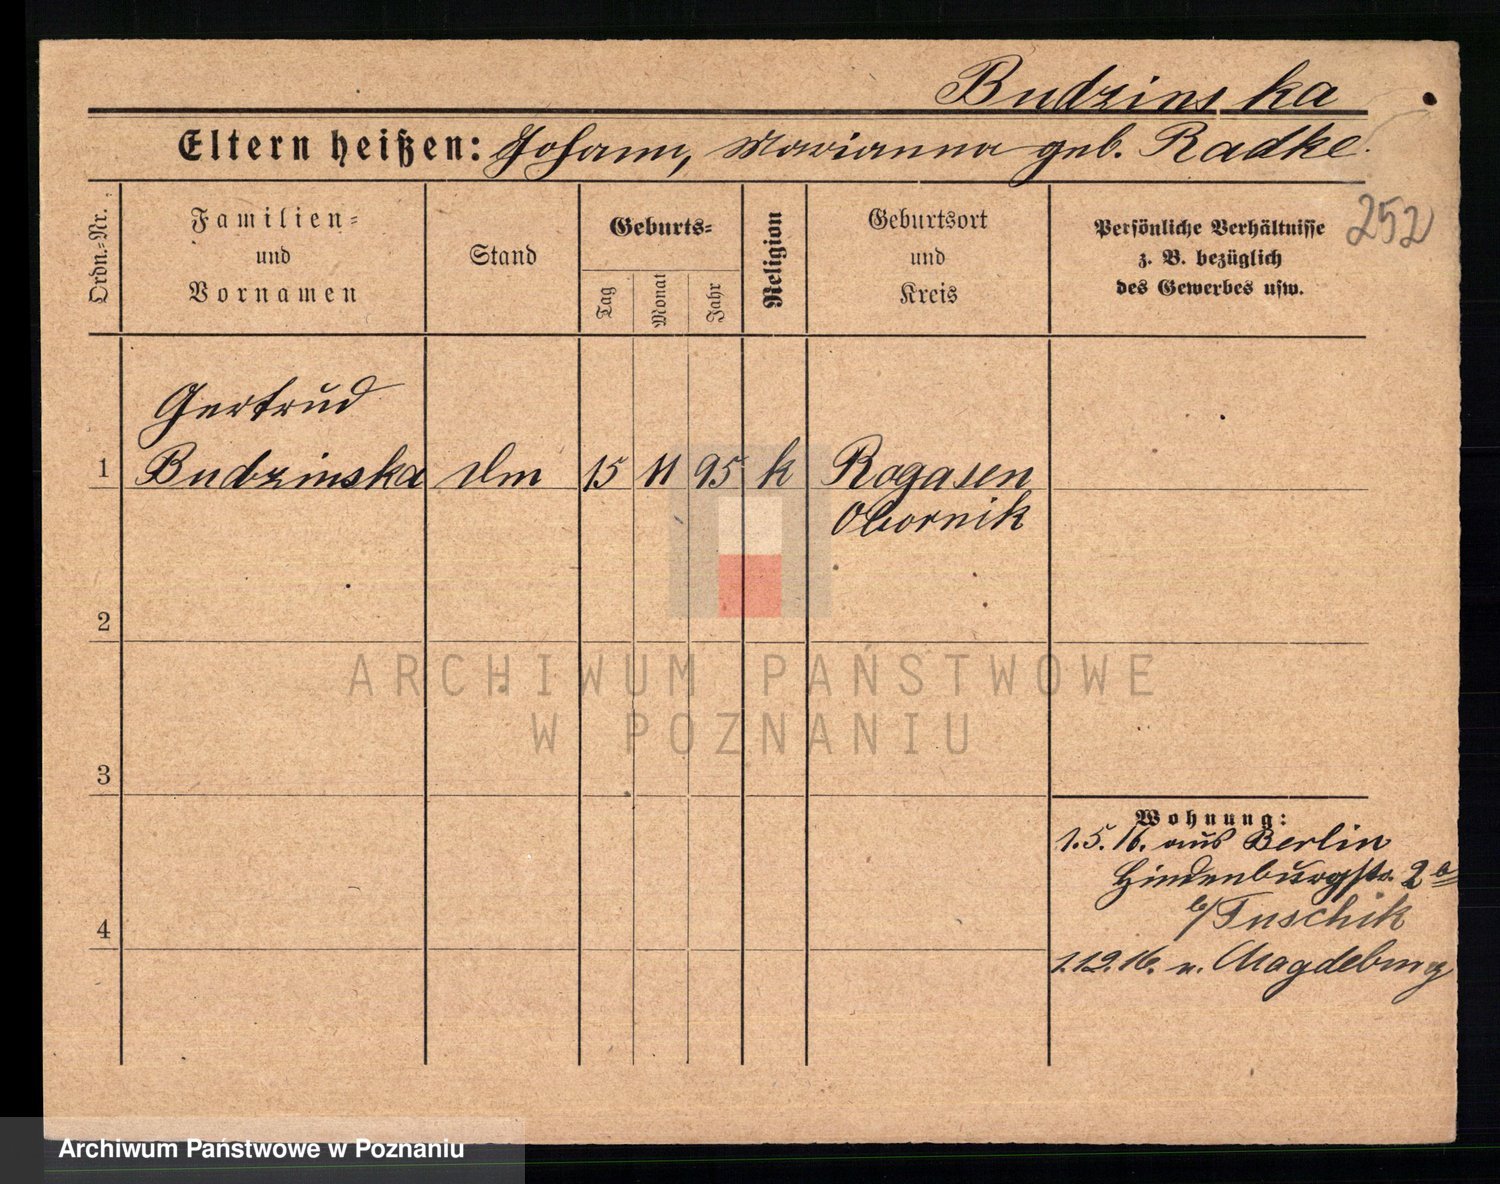 Budzinska
Eltern heißen: Johann, Marianna geb. Radke.
252
Ordn.=Nr.
Familien=
und
Vornamen
Stand
Geburts=
Tag
Monat
Jahr
Religion
Geburtsort
und
Kreis
Persönliche Verhältnisse
z. B. bezüglich
des Gewerbes usw.
Gertrud
1 Budzinska 15 11 95 k Rogasen
Obornik
2
3
4
Wohnung:
1.5.16. aus Berlin
Hindenburgstr. 2
b/Tuschik
n. Magdeburg
ARCHIWUM PAŃSTWOWE
W POZNANIU
Archiwum Państwowe w Poznaniu